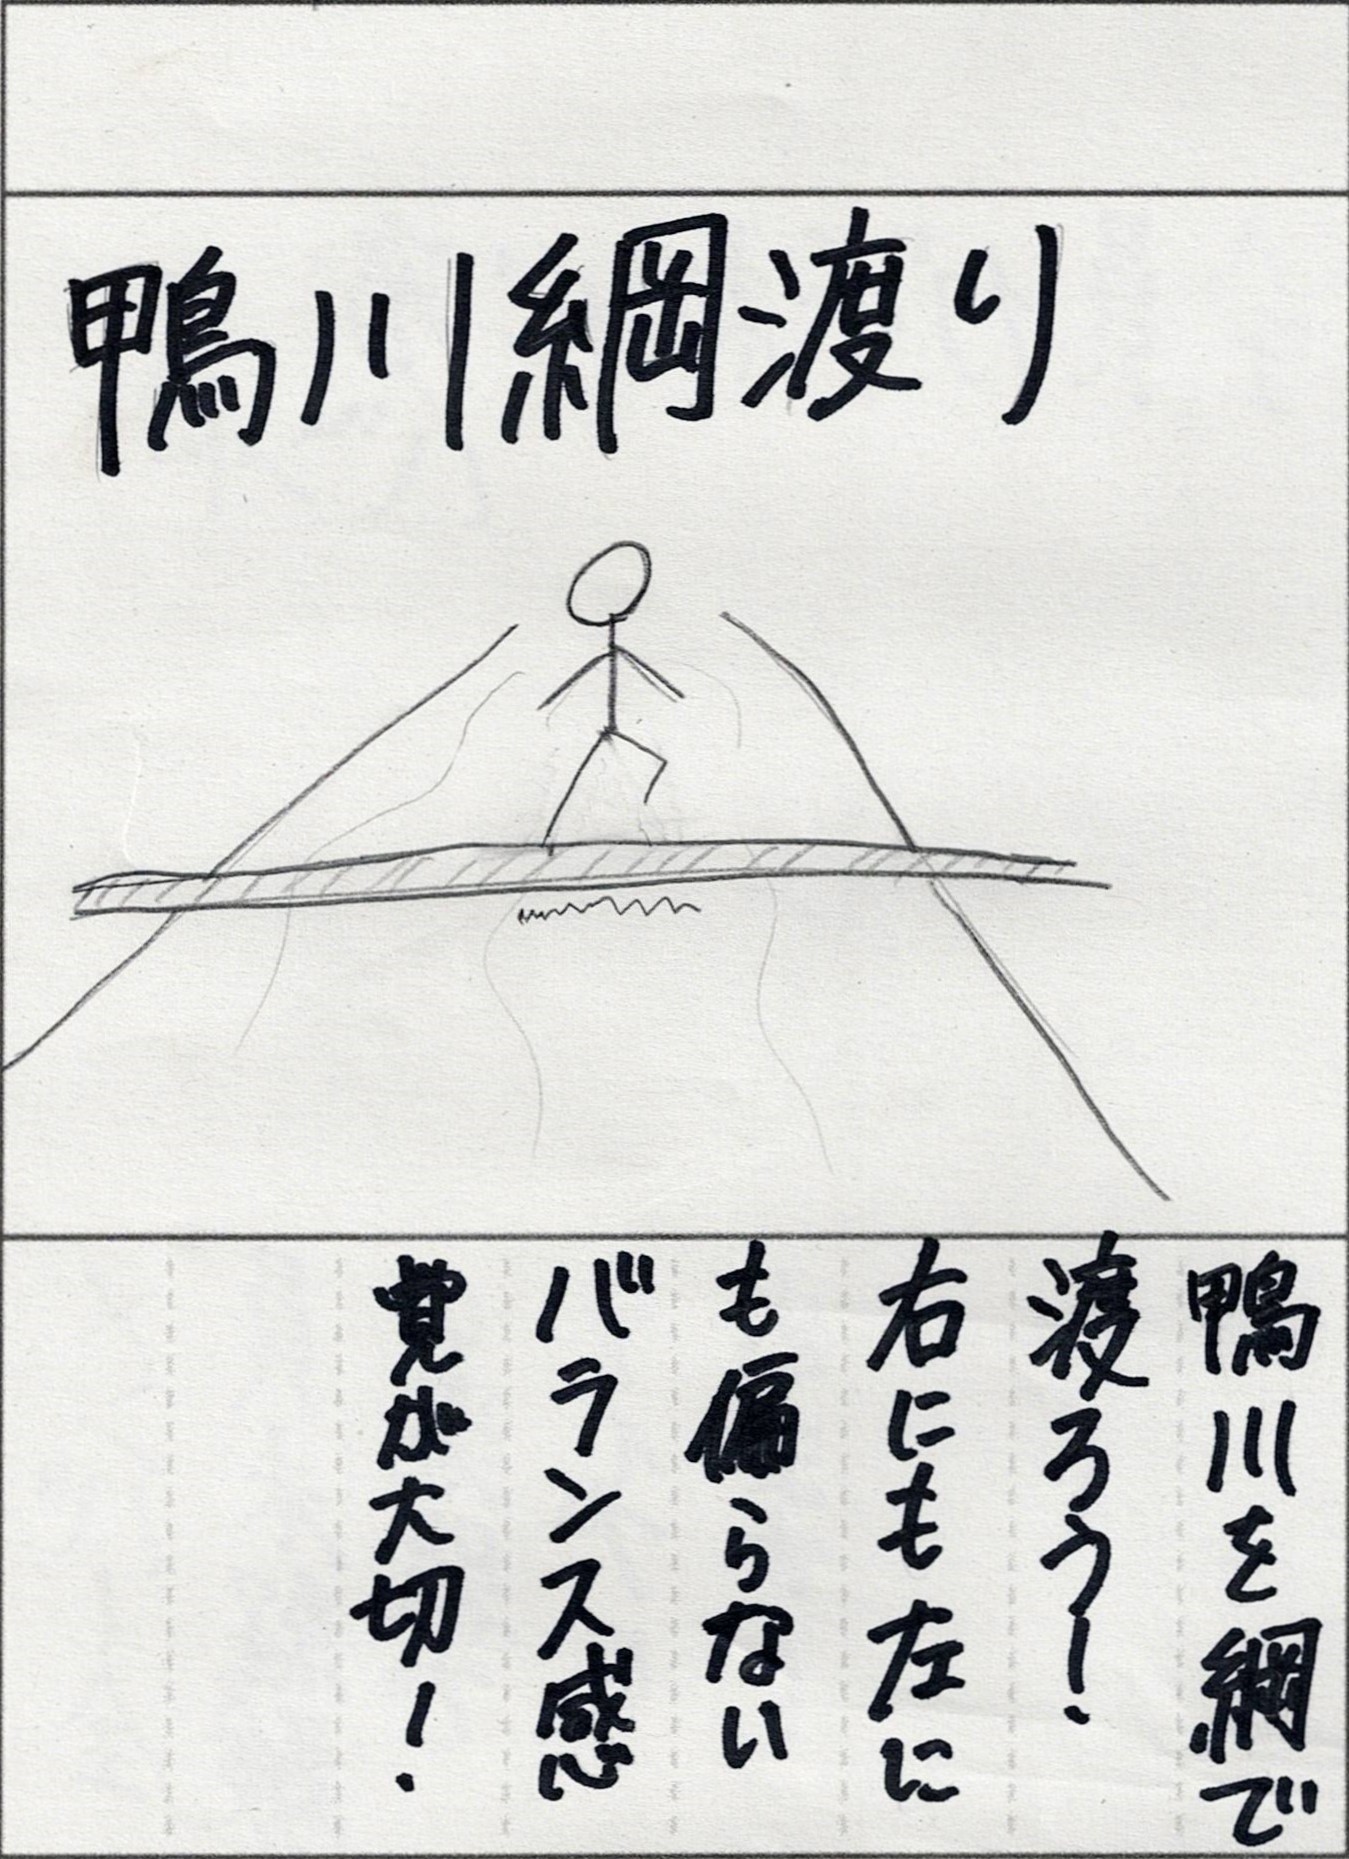 鴨川綱渡り
鴨川を綱で
渡ろう！
右にも左に
も偏らない
バランス感
覚が大切！